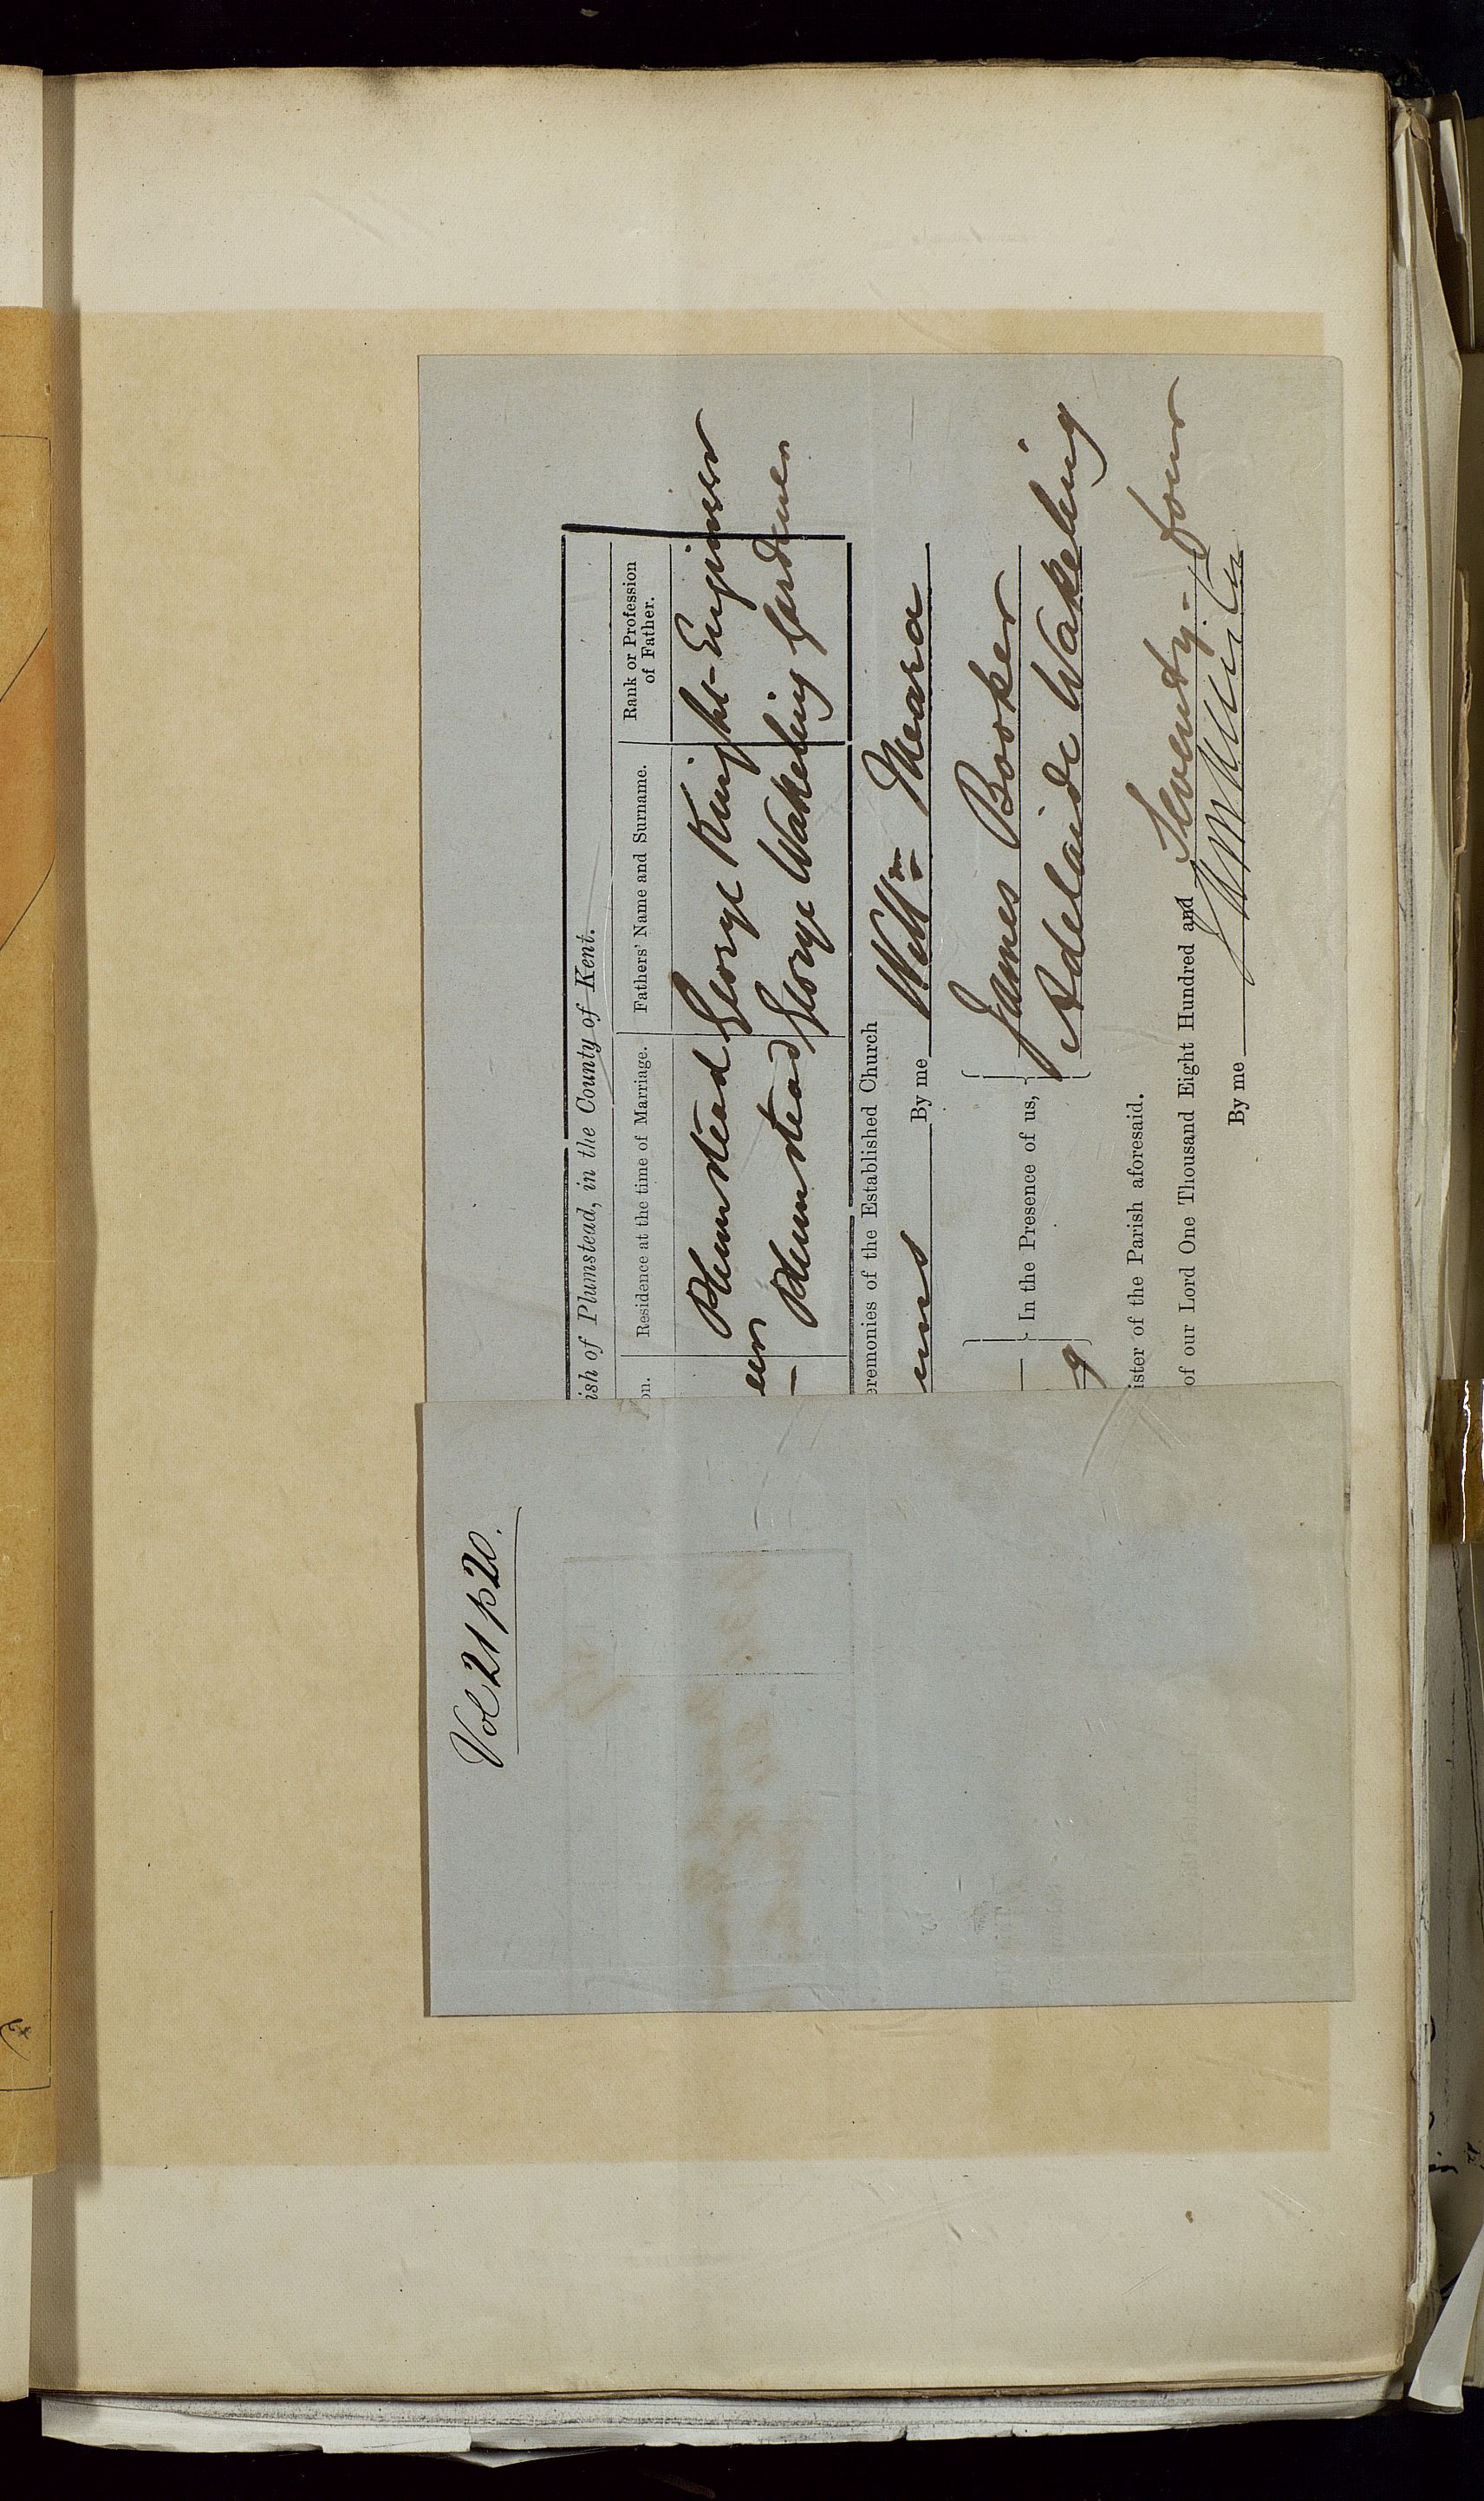 Vol 21 p 20.
ish of Plumstead, in the County of Kent.
on. Residence at the time of Marriage. Fathers' Name and Surname. Rank or Profession of Father.
Plumstead George Knight Engineer
Plumstead George Wakeling Gardener
eremonies of the Established Church
By me Willm Meara
In the Presence of us, James Booker
Adelaide Wakeling
ister of the Parish aforesaid.
of our Lord One Thousand Eight Hundred and Seventy-four
By me